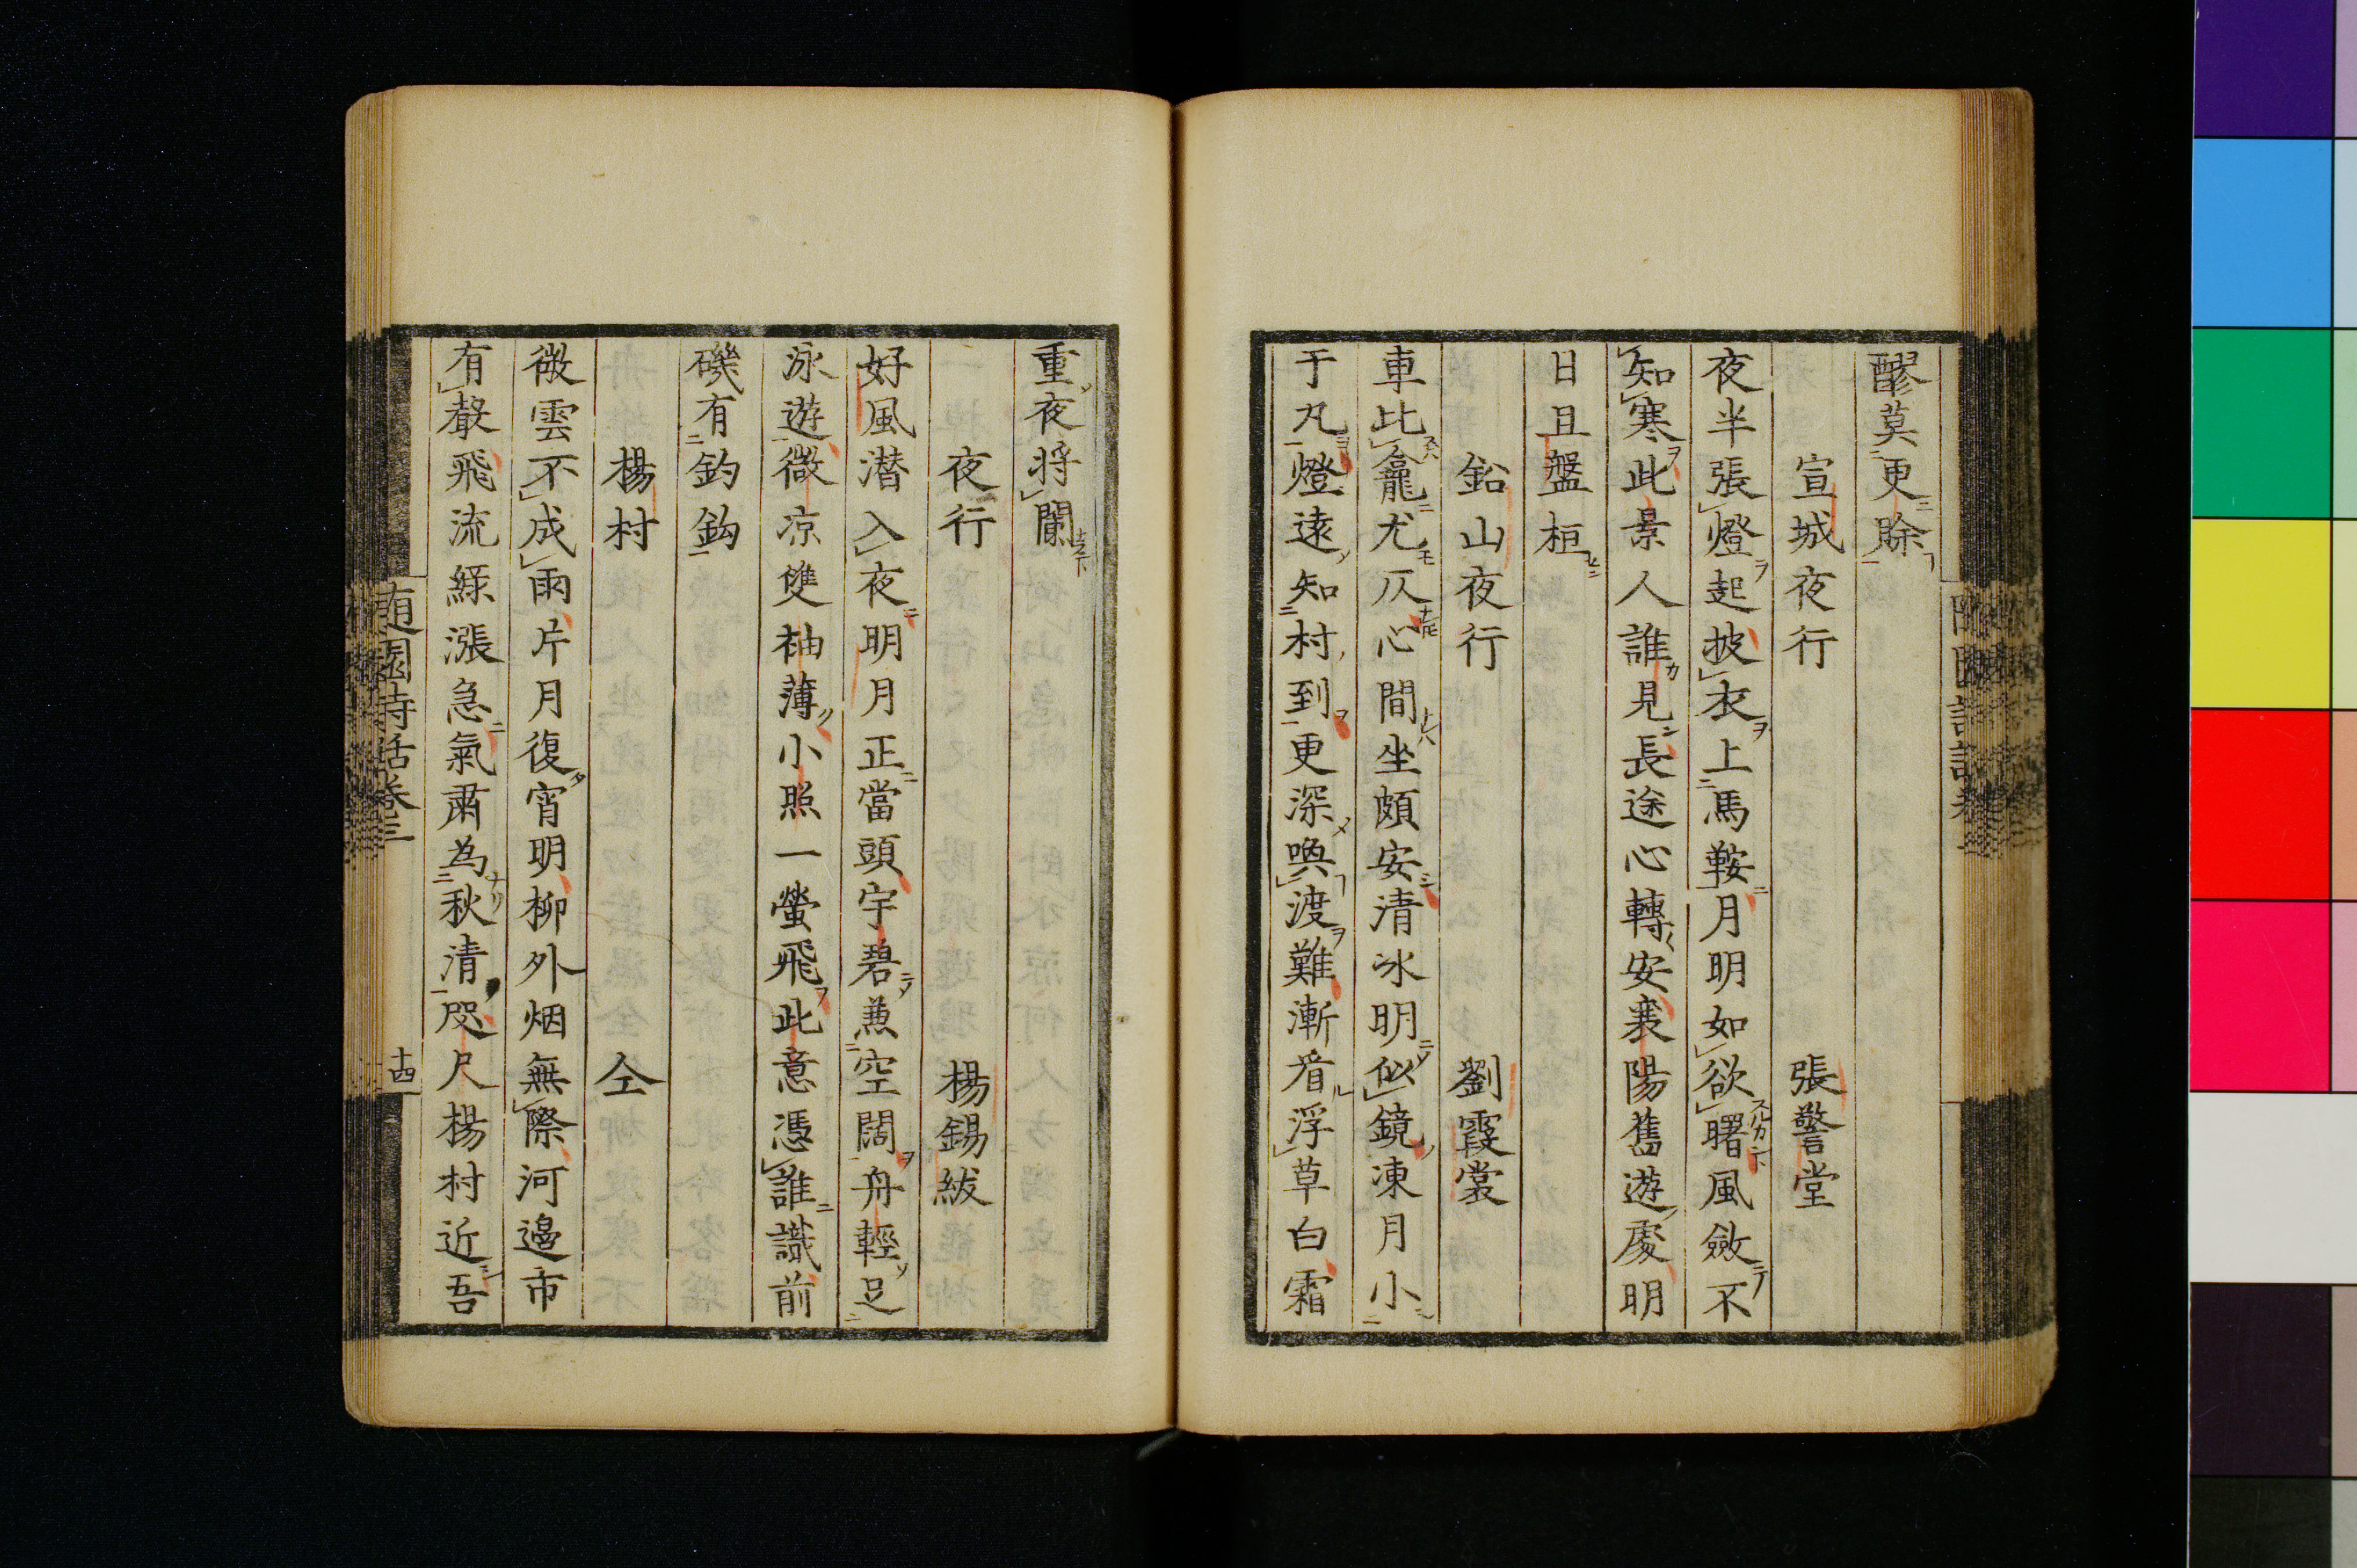 醪莫更賒
宣城夜行 張警堂
夜半張燈起披衣上馬鞍月明如欲曙風斂不
知寒此景人誰見長途心轉安襄陽舊遊處明
日且盤桓
鉛山夜行 劉霞裳
車比龕尤仄心間坐頗安清冰明似鏡凍月小
于丸燈遠知村到更深喚渡難漸看浮草白霜
重夜將闌
夜行 楊錫紱
好風潛入夜明月正當頭宇碧兼空闊舟輕足
泳遊微涼雙袖薄小照一螢飛此意憑誰識前
磯有釣鈎
楊村 仝
微雲不成雨片月復宵明柳外烟無際河邉市
有聲飛流綠漲急氣肅為秋清咫尺楊村近吾
随園詩話卷三
十四